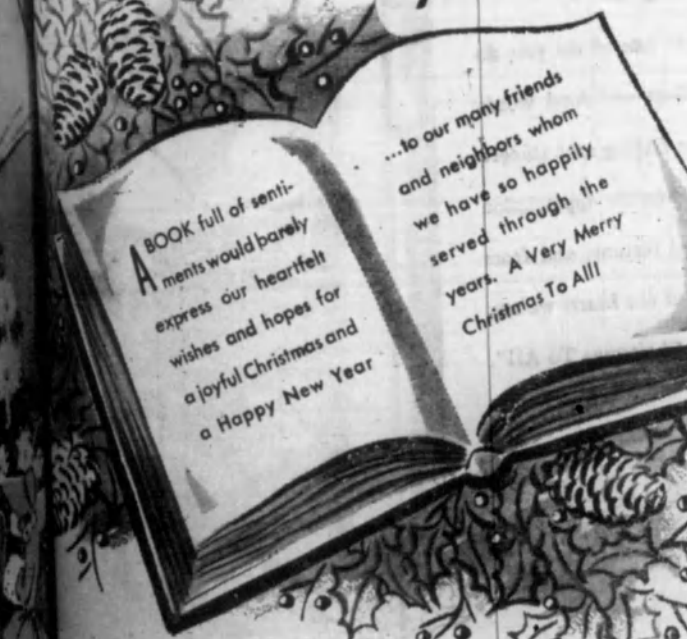 A BOOK full of senti-
ments would barely
express our heartfelt
wishes and hopes for
a joyful Christmas and
a Happy New Year
...to our many friends
and neighbors whom
we have so happily
served through the
years. A Very Merry
Christmas To All!